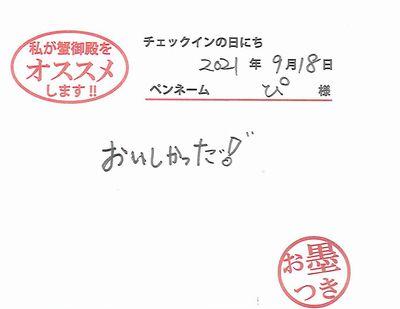 私が蟹御殿を
オススメ
します!!
チェックインの日にち
2021年9月18日
ペンネーム ぴ 様
おいしかった!!
お墨
つき